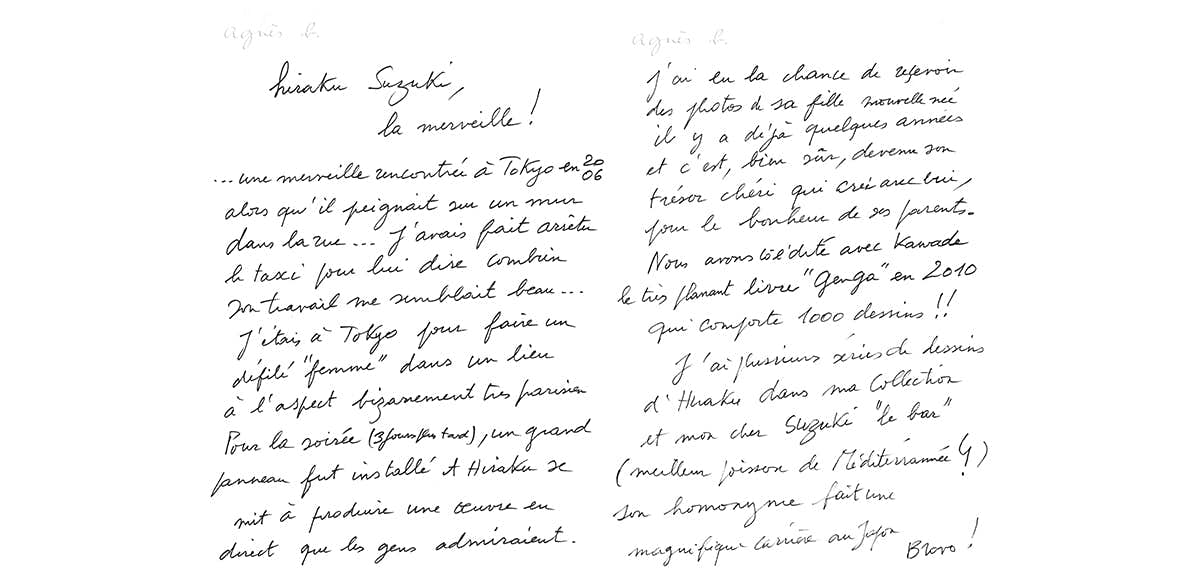 agnès b.
hiraku Suzuki,
la merveille !
...une merveille rencontrée à Tokyo en 2006
alors qu'il peignait sur un mur
dans la rue... J'avais fait arrêter
le taxi pour lui dire combien
son travail me semblait beau...
J'étais à Tokyo pour faire un
défilé "femme" dans un lieu
à l'aspect bizarrement très parisien
Pour la soirée (3 jours plus tard), un grand
panneau fut installé et Hiraku se
mit à produire une œuvre en
direct que les gens admiraient.
agnès b.
J'ai eu la chance de recevoir
des photos de sa fille nouvelle née
il y a déjà quelques années
et c'est, bien sûr, devenu son
trésor chéri qui crée avec lui,
pour le bonheur de ses parents.
Nous avons coédité avec Kawade
le très planant livre "Genga" en 2010
qui comporte 1000 dessins !!
J'ai plusieurs séries de dessins
d'Hiraku dans ma collection
et mon cher Suzuki "le bar"
(meilleur poisson de Méditerrannée !)
son homonyme fait une
magnifique carrière au Japon
Bravo !